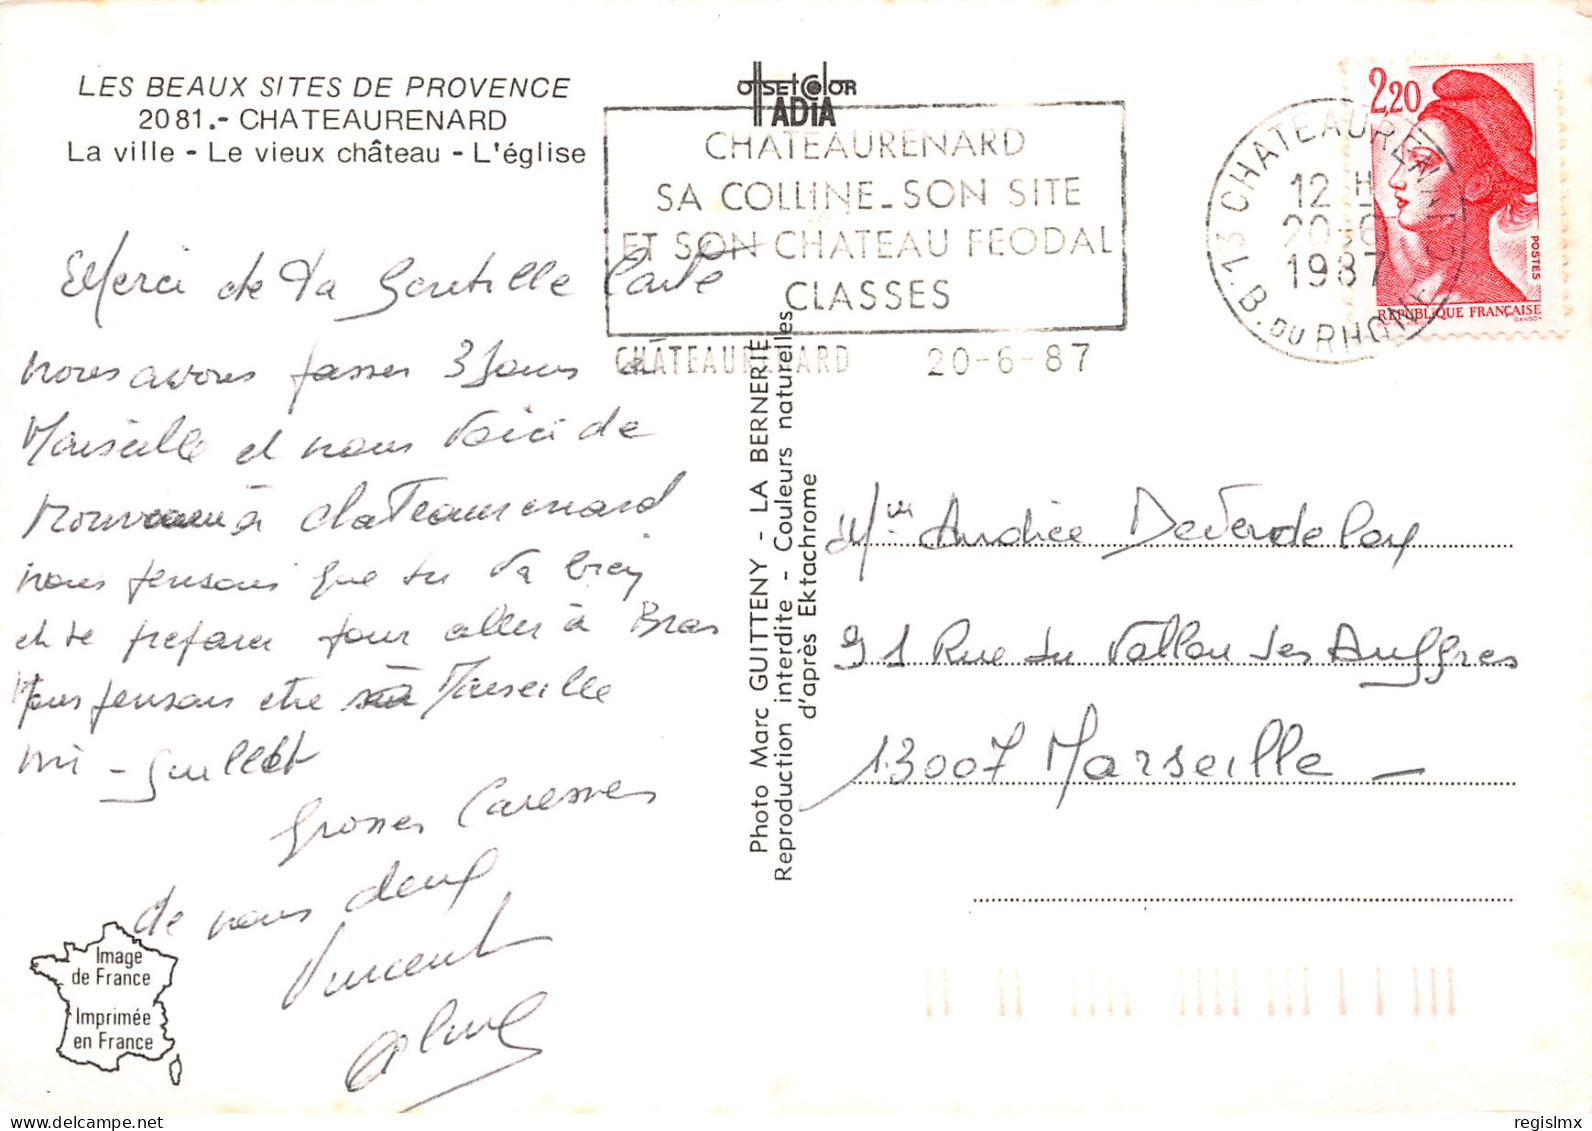 LES BEAUX SITES DE PROVENCE
2081.- CHATEAURENARD
La ville - Le vieux château - L'église
OffsetColor
ADIA
CHATEAURENARD
SA COLLINE_SON SITE
ET SON CHATEAU FEODAL
CLASSES
CHATEAURENARD 20-6-87
13 CHATEAURENARD
B. DU RHONE
12 H
20-6
1987
2,20
POSTES
REPUBLIQUE FRANÇAISE
GANDON
Merci de ta Gentille Carte
nous avons passer 3 Jours à
Marseille et nous voici de
nouveau à chateaurenard
nous pensons que tu va bien
et te preparer pour aller à Bras
nous pensons etre à Marseille
mi - Juillet
Grosses Caresses
de nous deux
Vincent
Photo Marc GUITTENY - LA BERNERIE
Reproduction interdite - Couleurs naturelles
d'après Ektachrome
Andrée
91 Rue du Vallon des Auffres
13007 Marseille -
Image
de France
Imprimée
en France
regislmx